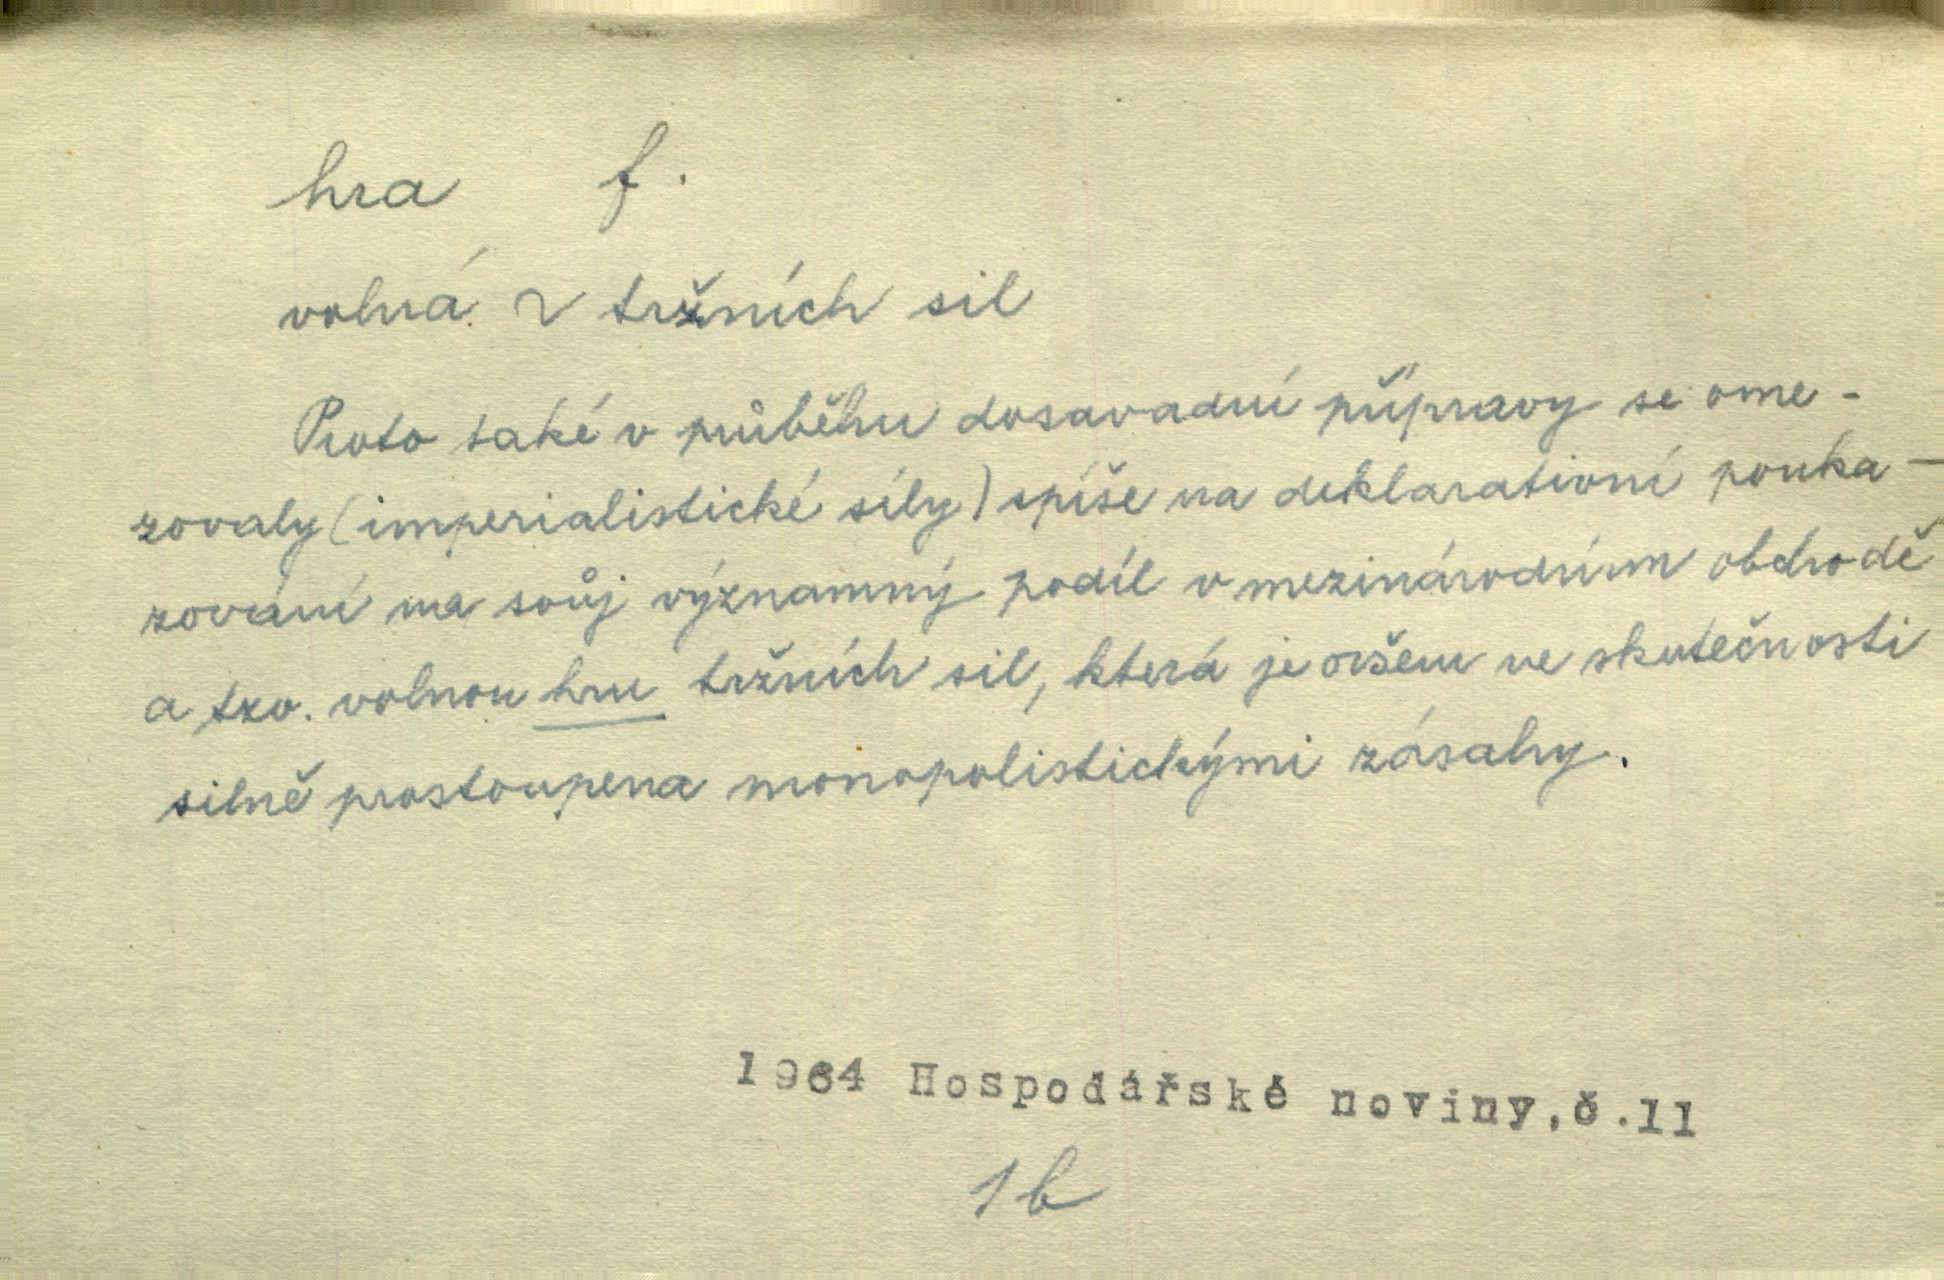 hra f.
volná ~ tržních sil
Proto také v průběhu dosavadní přípravy se ome-
zovaly (imperialistické síly) spíše na deklarativní pouka-
zování na svůj významný podíl v mezinárodním obchodě
a tzv. volnou hru tržních sil, která je ovšem ve skutečnosti
silně prostoupena monopolistickými zásahy.
1964 Hospodářské noviny, č.11
1b